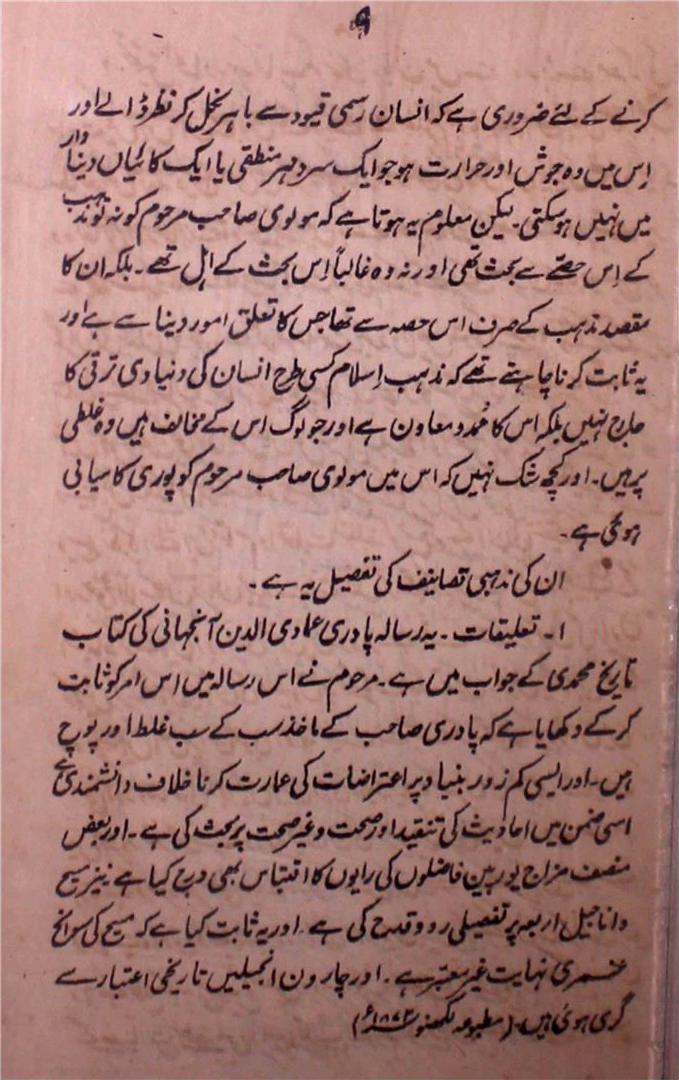 ۹
کرنے کے لئے ضروری ہے کہ انسان رسمی قیود سے باہر نکل کر نظر ڈالے اور
اِس میں وہ جوش اور حرارت ہو جو ایک سرد مہر منطقی یا ایک کائیاں دنیا دار
میں نہیں ہو سکتی۔ لیکن معلوم یہ ہوتا ہے کہ مولوی صاحب مرحوم کو نہ تو مذہب
کے اِس حصّے سے بحث تھی اور نہ وہ غالباً اِس بحث کے اہل تھے۔ بلکہ ان کا
مقصد مذہب کے صرف اس حصہ سے تھا جس کا تعلق امور دینا سے ہے اور
یہ ثابت کرنا چاہتے تھے کہ مذہب اِسلام کسی طرح انسان کی دنیاوی ترقی کا
ہارج نہیں بلکہ اس کا مُمد و معاون ہے اور جو لوگ اس کے مخالف ہیں وہ غلطی
پر ہیں۔ اور کچھ شک نہیں کہ اس میں مولوی صاحب مرحوم کو پوری کامیابی
ہوئی ہے۔
ان کی مذہبی تصانیف کی تفصیل یہ ہے۔
۱۔ تعلیقات۔ یہ رسالہ پادری عمادی الدین آنجہانی کی کتاب
تاریخ محمدی کے جواب میں ہے۔ مرحوم نے اس رسالہ میں اِس امر کو ثابت
کر کے دکھایا ہے کہ پادری صاحب کے ماخذ سب کے سب غلط اور پوچ
ہیں۔ اور ایسی کم زور بنیاد پر اعتراضات کی عمارت کرنا خلاف دانشمندی ہے
اسی ضمن میں احادیث کی تنقید اور صحت و غیر صحت پر بحث کی ہے۔ اور بعض
منصف مزاج یورپین فاضلوں کی رایوں کا اقتباس بھی درج کیا ہے نیز مسیح
و اناجیل اربعہ پر تفصیلی رد و قدح کی ہے اور یہ ثابت کیا ہے کہ مسیح کی سوانح
عمری نہایت غیر معتبر ہے۔ اور چارون انجیلیں تاریخی اعتبار سے
گری ہوئی ہیں۔ (مطبوعہ لکھنؤ ۱۸۷۲ء)